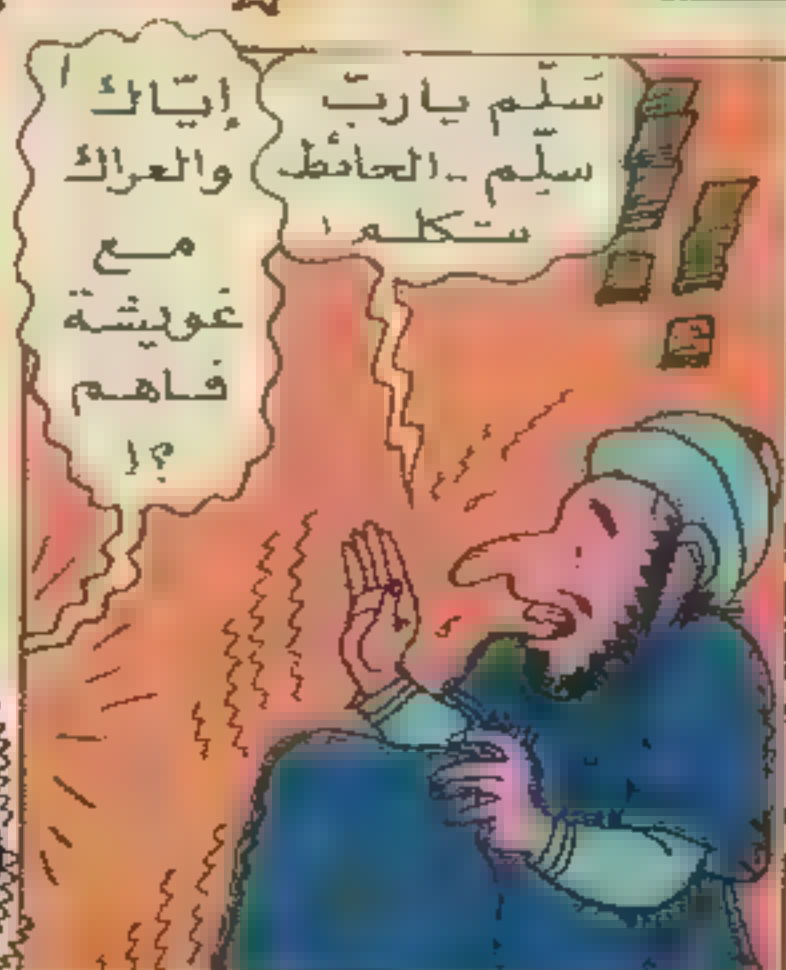 سَلّم يا ربّ
سلّم .. الحائط
تتكلم !
إيّاك
والعراك
مع
غويشة
فاهم
؟!